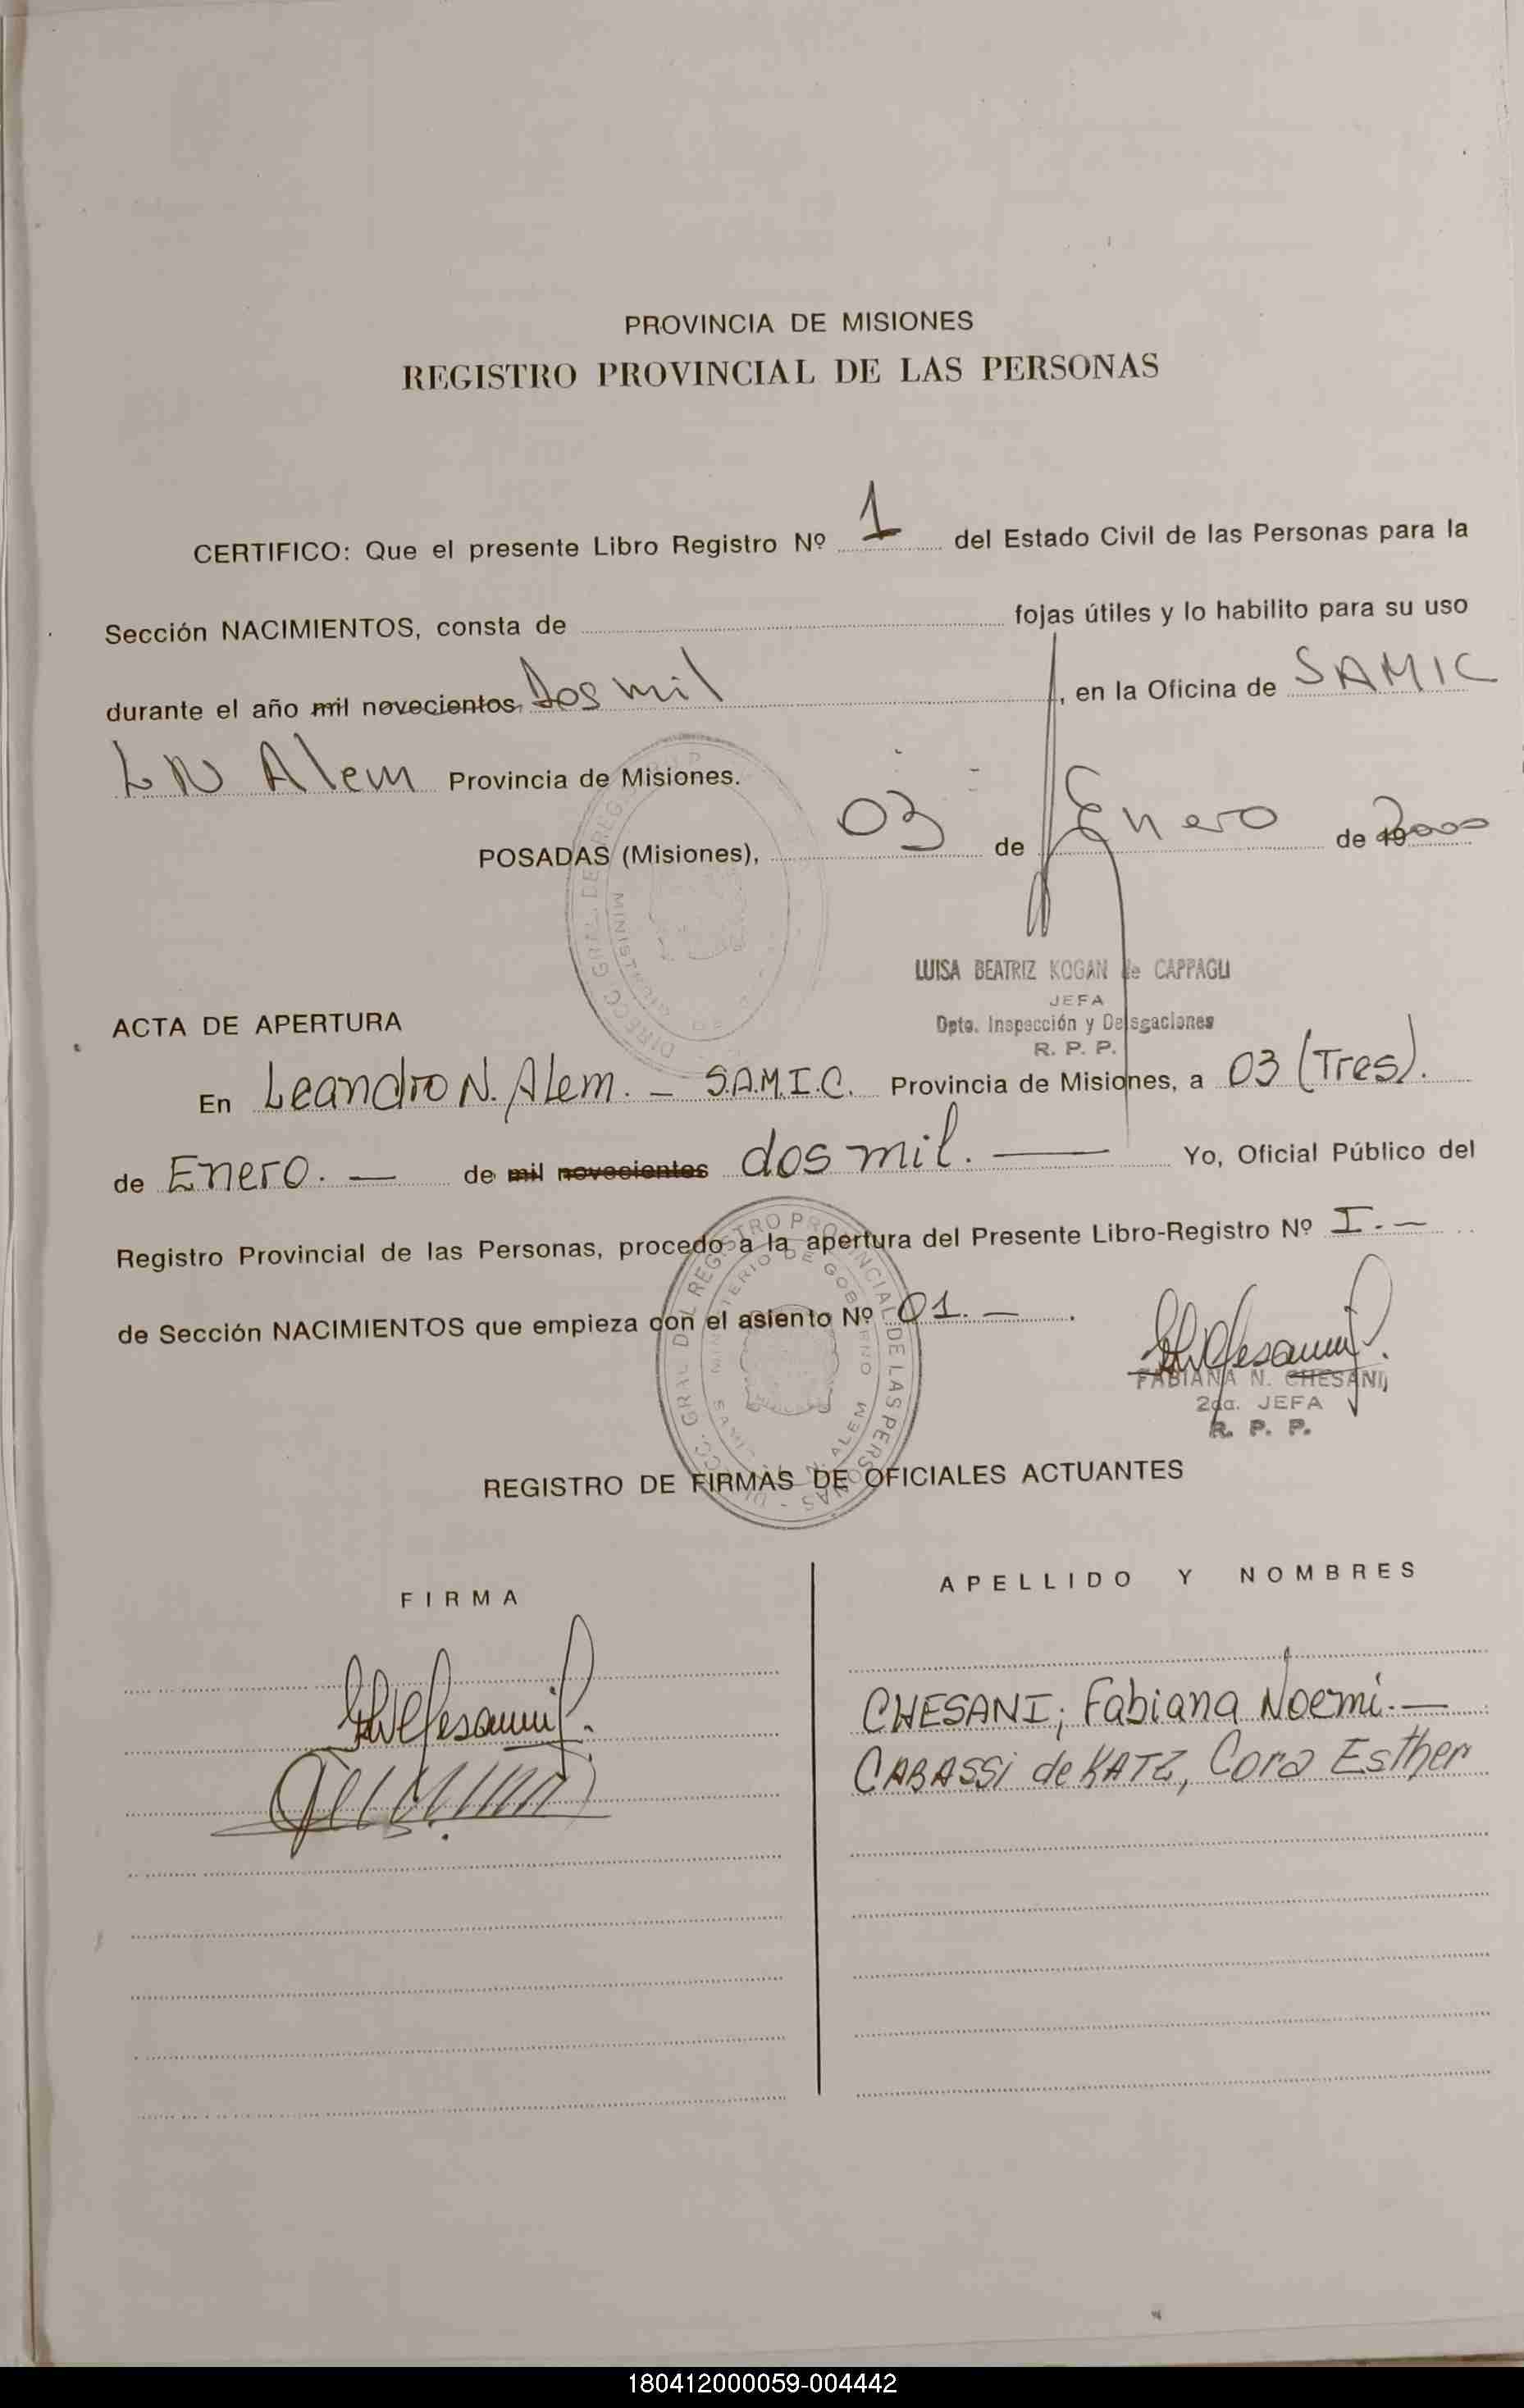 PROVINCIA DE MISIONES
REGISTRO PROVINCIAL DE LAS PERSONAS
CERTIFICO: Que el presente Libro Registro Nº 1 del Estado Civil de las Personas para la
Sección NACIMIENTOS, consta de fojas útiles y lo habilito para su uso
durante el año mil novecientos, Dos mil, en la Oficina de SAMIC
LN Alem Provincia de Misiones.
POSADAS (Misiones), 03 de Enero de 19 2000
LUISA BEATRIZ KOGAN de CAPPAGLI
JEFA
Dpto. Inspección y Delegaciones
R. P. P.
ACTA DE APERTURA
En Leandro N. Alem. — S.A.M.I.C. Provincia de Misiones, a 03 (Tres).
de Enero. — de mil novecientos dos mil. — Yo, Oficial Público del
Registro Provincial de las Personas, procedo a la apertura del Presente Libro-Registro Nº I. —
de Sección NACIMIENTOS que empieza con el asiento Nº 01. — .
DIRECC. GRAL. DEL REGISTRO PROVINCIAL DE LAS PERSONAS
MINISTERIO DE GOBIERNO
FABIANA N. CHESANI
2da. JEFA
R. P. P.
REGISTRO DE FIRMAS DE OFICIALES ACTUANTES
FIRMA APELLIDO Y NOMBRES
CHESANI; Fabiana Noemi. —
CABASSI de KATZ, Cora Esther
180412000059-004442